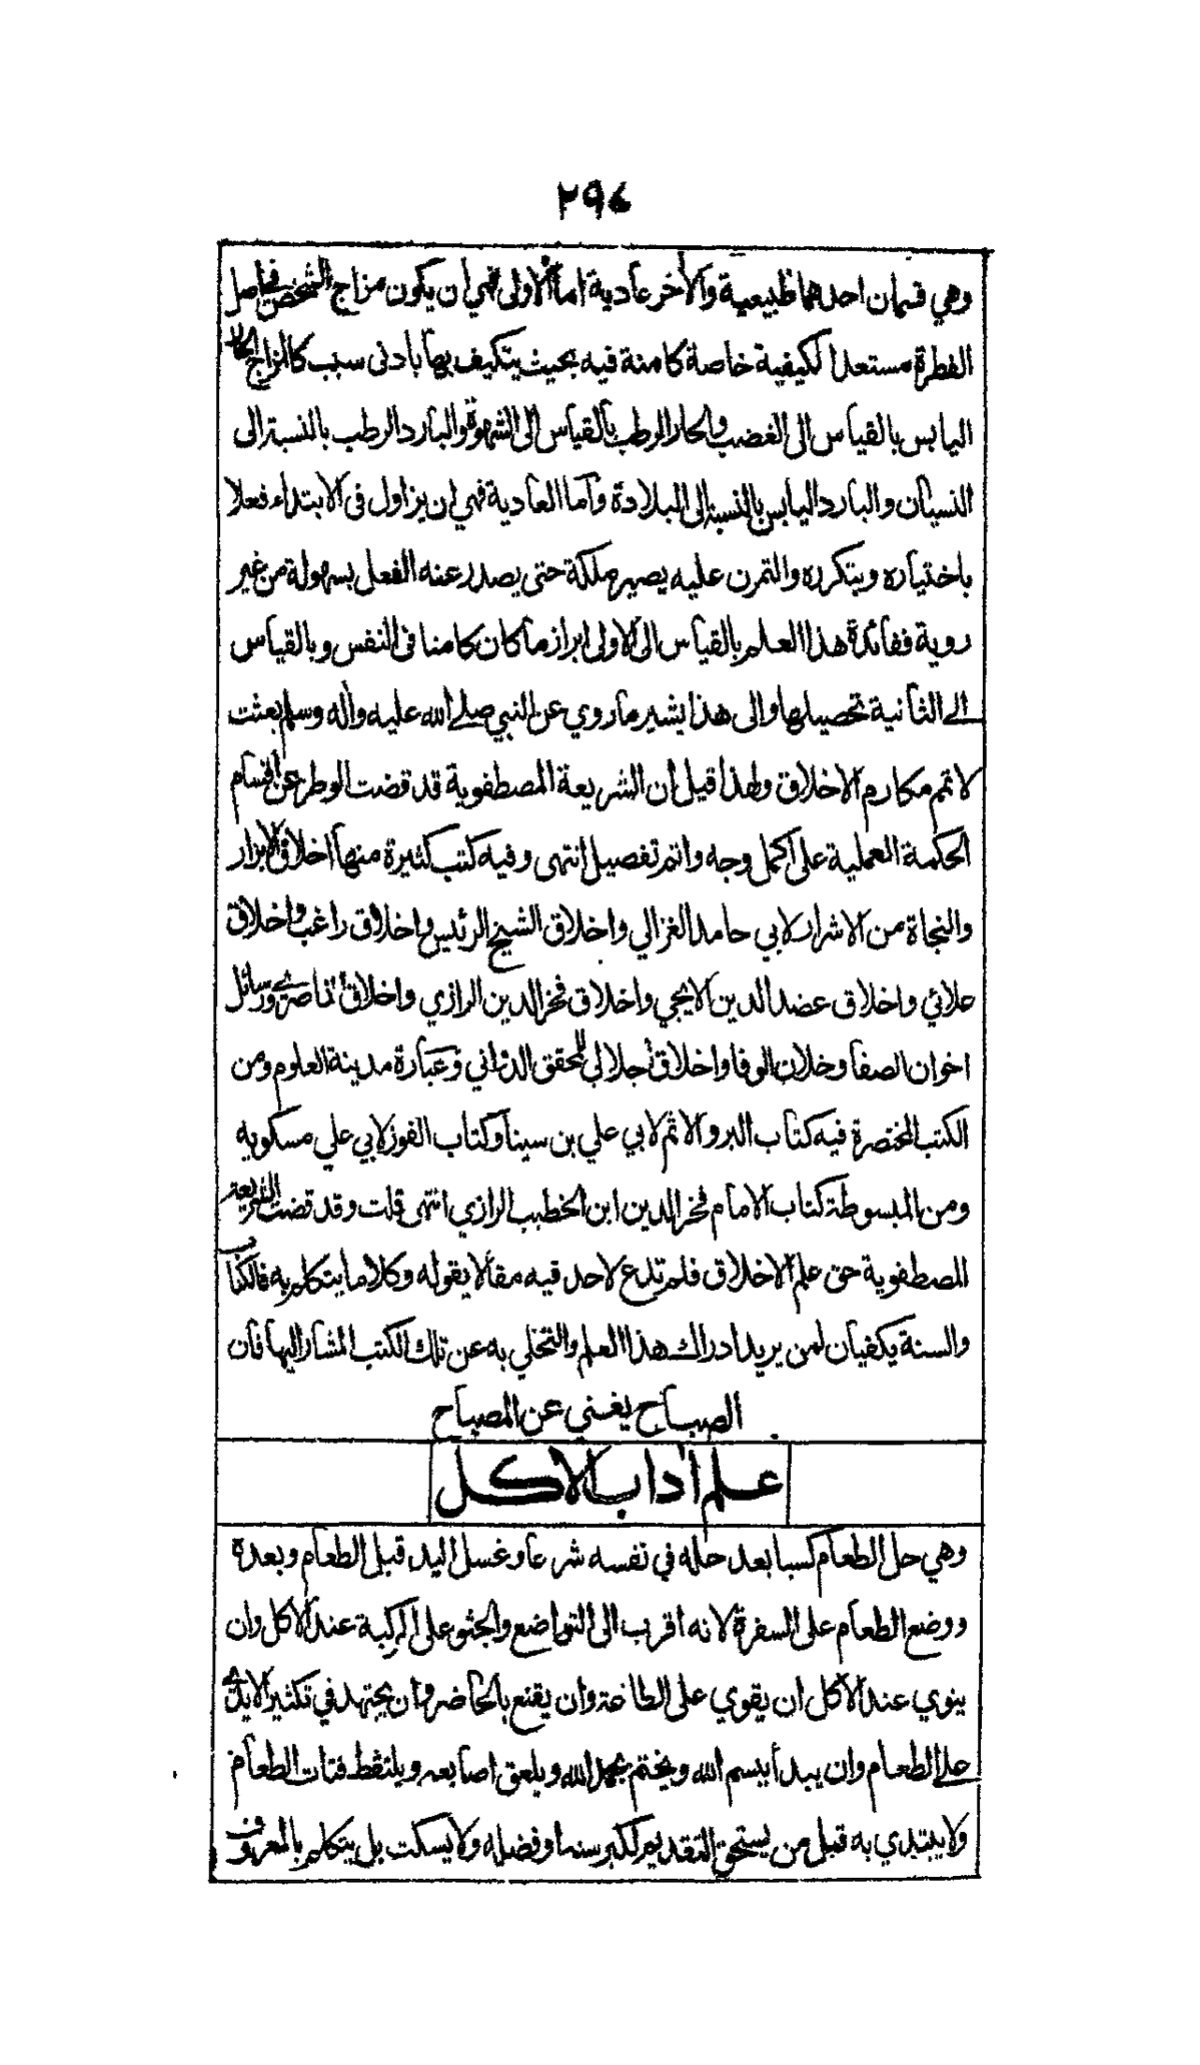 ٢٩٤
وهي قسمان احدهما طبيعية والاخر عادية اما الاولى فهي ان يكون مزاج الشخص في اصل
الفطرة مستعدا لكيفية خاصة كامنة فيه بحيث يتكيف بها بادنى سبب كالمزاج الحار
اليابس بالقياس الى الغضب والحار الرطب بالقياس الى الشهوة والبارد الرطب بالنسبة الى
النسيان والبارد اليابس بالنسبة الى البلادة وأما العادية فهي ان يزاول فى الابتداء فعلا
باختياره وبتكرره والتمرن عليه يصير ملكة حتى يصدر عنه الفعل بسهولة من غير
روية ففائدة هذا العلم بالقياس الى الاولى ابراز ما كان كامنا فى النفس وبالقياس
الى الثانية تحصيلها والى هذا يشير ما روي عن النبي صلى الله عليه واله وسلم بعثت
لاتمم مكارم الاخلاق ولهذا قيل ان الشريعة المصطفوية قد قضت الوطر عن اقسام
الحكمة العملية على اكمل وجه واتم تفصيل انتهى وفيه كتب كثيرة منها اخلاق الابرار
والنجاة من الاشرار لابي حامد الغزالي واخلاق الشيخ الرئيس واخلاق راغب واخلاق
علائي واخلاق عضد الدين الايجي واخلاق فخر الدين الرازي واخلاق ناصري ورسائل
اخوان الصفا وخلان الوفا واخلاق جلالي للمحقق الدواني وعبارة مدينة العلوم ومن
الكتب المختصرة فيه كتاب البر والاثم لابي علي بن سينا وكتاب الفوز لابي علي مسكويه
ومن المبسوطة كتاب الامام فخر الدين ابن الخطيب الرازي انتهى قلت وقد قضت الشريعة
المصطفوية حق علم الاخلاق فلم تدع لاحد فيه مقالا يقوله وكلاما يتكلم به فالكتاب
والسنة يكفيان لمن يريد ادراك هذا العلم والتخلي به عن تلك الكتب المشار اليها فان
الصباح يغني عن المصباح
علم اداب الاكل
وهي حل الطعام كسبا بعد حله في نفسه شرعا وغسل اليد قبل الطعام وبعدة
ووضع الطعام على السفرة لانه اقرب الى التواضع والجثو على الركبة عند الاكل وان
ينوي عند الاكل ان يقوي على الطاعة وان يقنع بالحاضر وان يجتهد في تكثير الايدي
على الطعام وان يبدأ ببسم الله ويختم بحمد الله ويلعق اصابعه ويلتقط فتات الطعام
ولا يبتدي به قبل من يستحق التقديم لكبر سنه او فضله ولا يسكت بل يتكلم بالمعروف